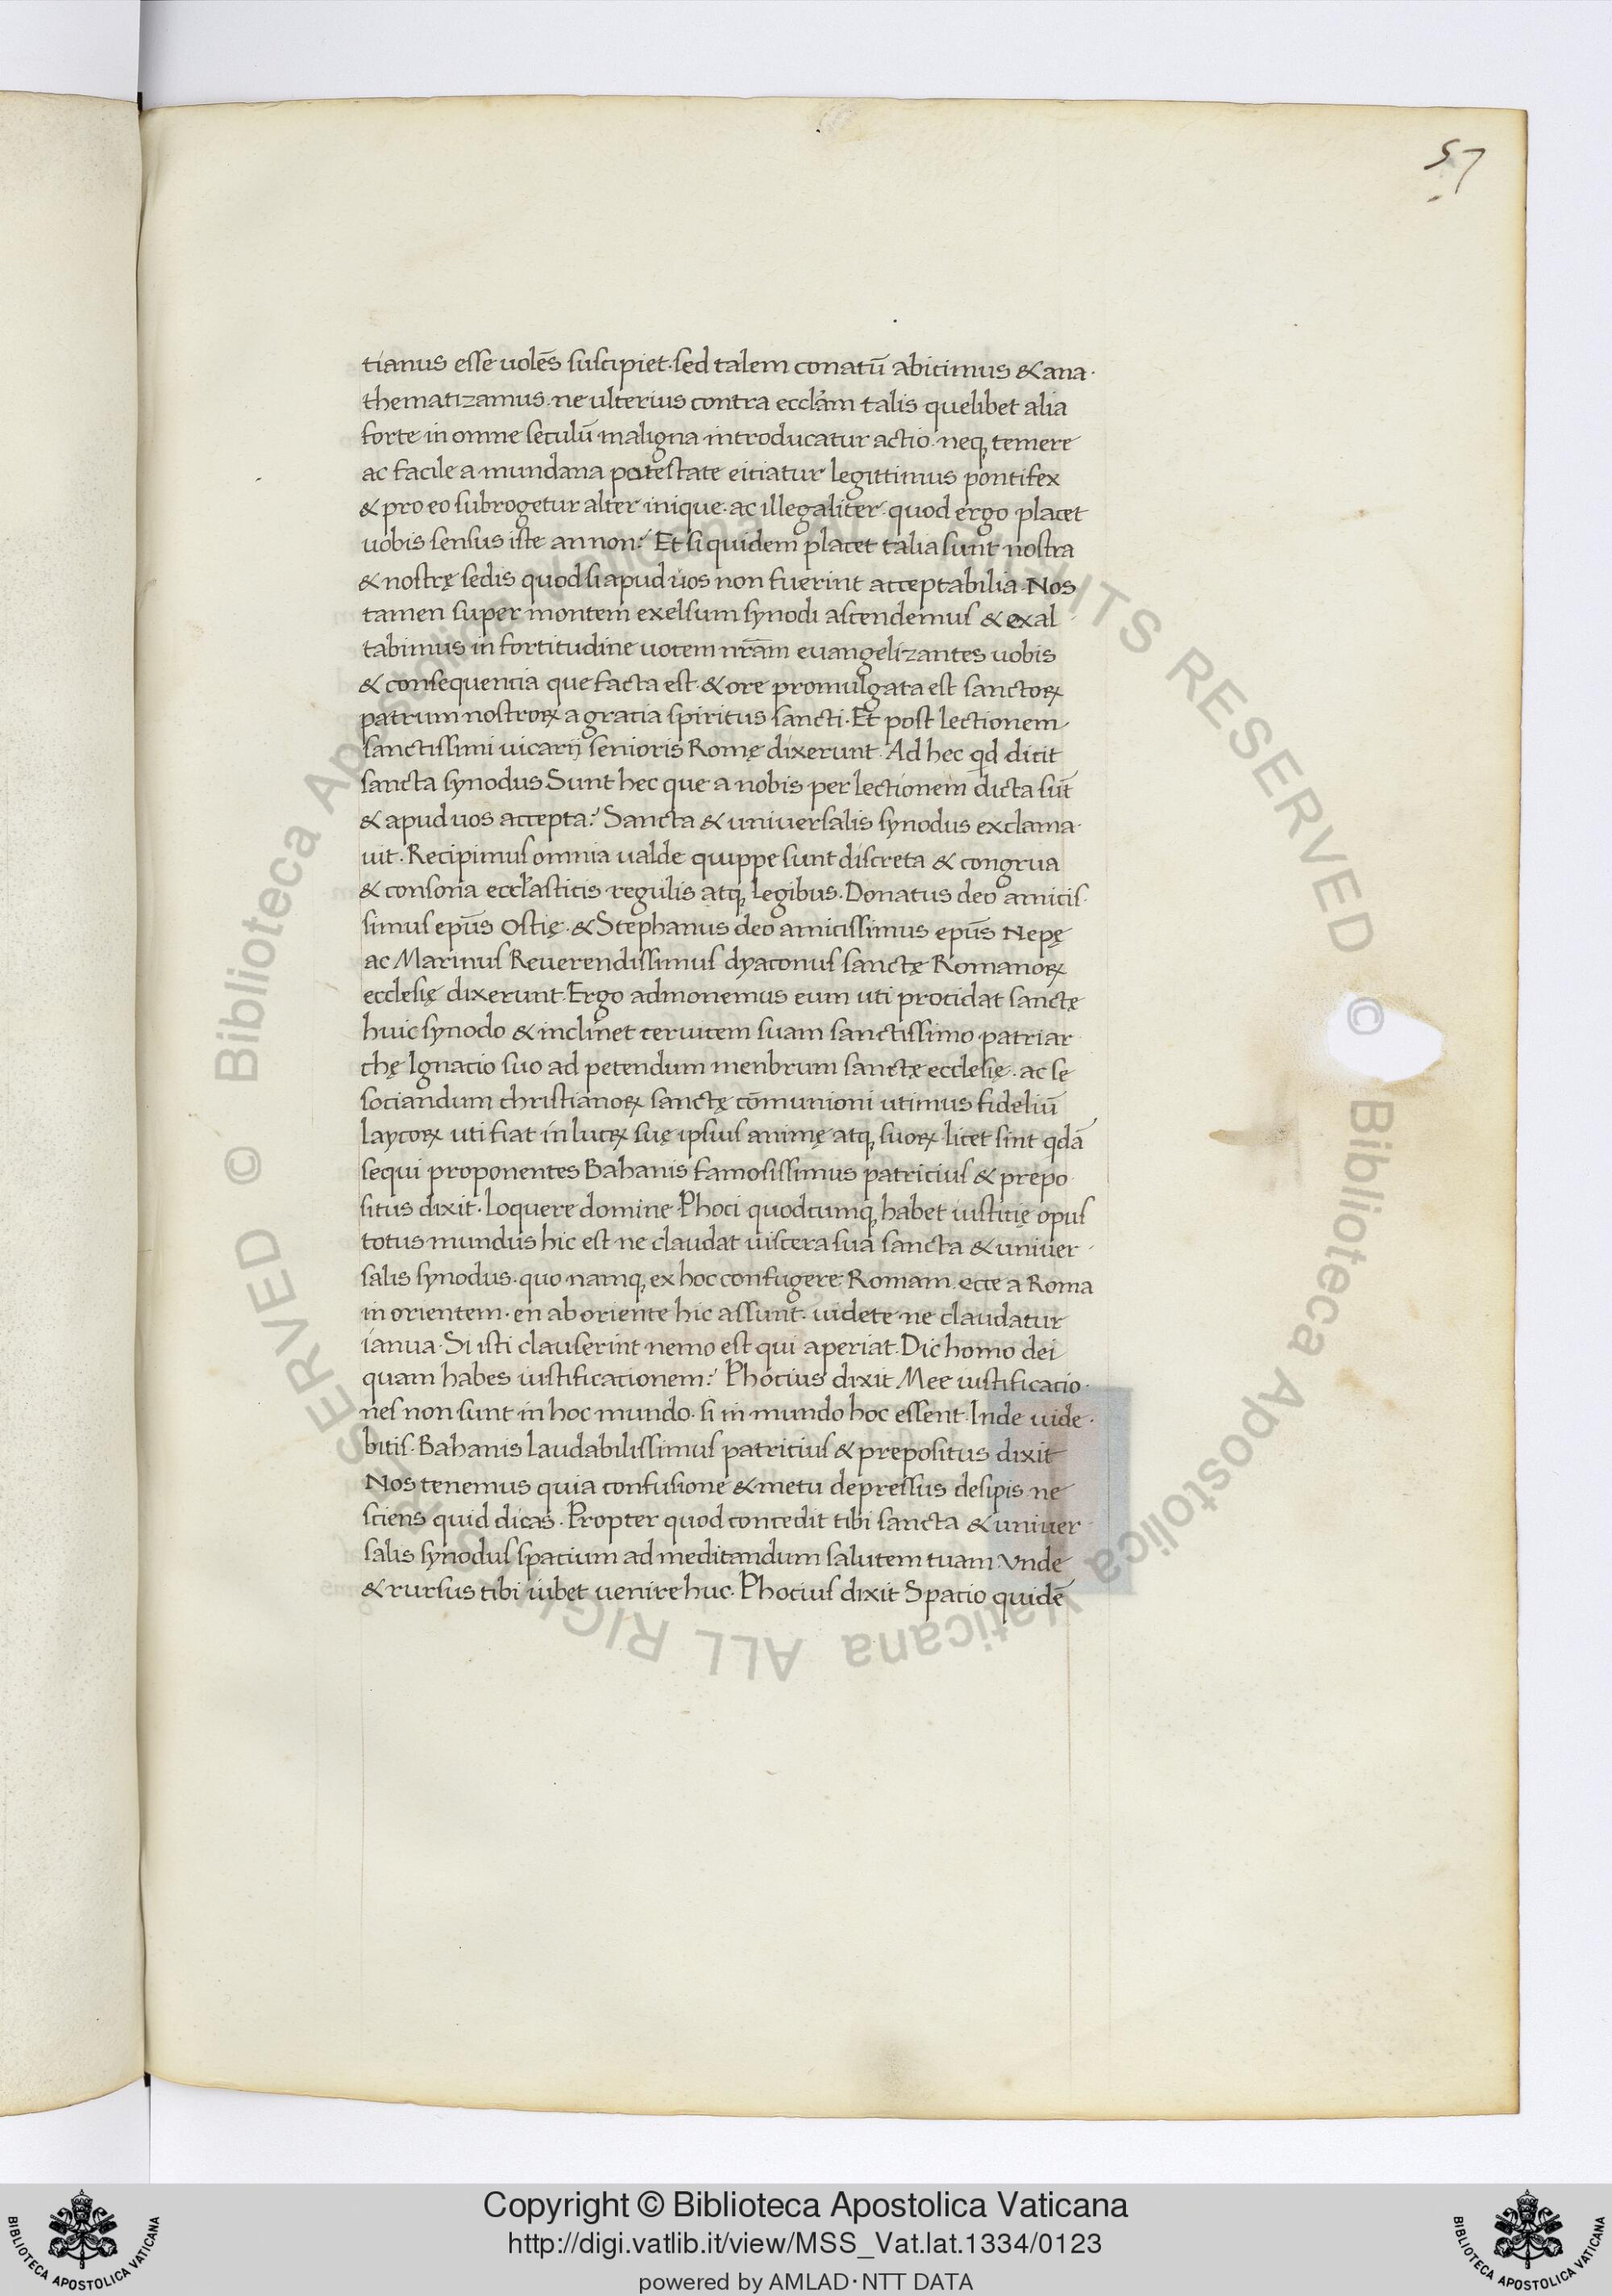 57
tianus esse uolẽs suscipiet. sed talem conatũ abicimus & ana
thematizamus. ne ulterius contra eccl̃am talis quelibet alia
forte in omne seculũ maligna introducatur actio. neq; temere
ac facile a mundana potestate eiciatur legittimus pontifex
& pro eo subrogetur alter inique. ac illegaliter. quod ergo placet
uobis sensus iste annon? Et siquidem placet talia sunt nostra
& nostrę sedis quod si apud uos non fuerint acceptabilia. Nos
tamen super montem exelsum synodi ascendemus & exal
tabimus in fortitudine uocem nr̃am euangelizantes uobis
& consequencia que facta est. & ore promulgata est sanctoꝝ
patrum nostroꝝ a gracia spiritus sancti. Et post lectionem
sanctissimi uicarij senioris Romę dixerunt. Ad hec qd dicit
sancta synodus Sunt hec que a nobis per lectionem dicta sũt
& apud uos accepta? Sancta & universalis synodus exclama
uit. Recipimus omnia ualde quippe sunt discreta & congrua
& consona eccl̃asticis regulis atq; legibus. Donatus deo amicis
simus ep̃us Ostię. & Stephanus deo amicissimus ep̃us Nepę
ac Marinus Reuerendissimus dyaconus sanctę Romanoꝝ
ecclesię dixerunt. Ergo admonemus eum uti procidat sanctę
huic synodo & inclinet ceruicem suam sanctissimo patriar
chę Ignacio suo ad petendum menbrum sanctę ecclesię. ac se
sociandum christianoꝝ sanctę cõmunioni utimus fideliũ
laycoꝝ uti fiat in lucꝝ suę ipsius animę atq; suoꝝ licet sint qdã
sequi proponentes Bahanis famosissimus patricius & prepo
situs dixit. Loquere domine Phoci quodcumq; habet iusticię opus
totus mundus hic est ne claudat uiscera sua sancta & uniuer
salis synodus. quo namq; ex hoc confugere Romam. ecce a Roma
in orientem. en ab oriente hic assunt. uidete ne claudatur
ianua. Si isti clauserint nemo est qui aperiat. Dic homo dei
quam habes iustificacionem? Phocius dixit Mee iustificacio
nes non sunt in hoc mundo. si in mundo hoc essent. Inde uide
bitis. Bahanis laudabilissimus patricius & prepositus dixit
Nos tenemus quia confusione & metu depressus desipis ne
sciens quid dicas. Propter quod concedit tibi sancta & uniuer
salis synodus spacium ad meditandum salutem tuam. Vnde
& rursus tibi iubet uenire huc. Phocius dixit Spacio quidẽ
© Biblioteca Apostolica Vaticana ALL RIGHTS RESERVED © Biblioteca Apostolica Vaticana ALL RIGHTS RESERVED
Copyright © Biblioteca Apostolica Vaticana
http://digi.vatlib.it/view/MSS_Vat.lat.1334/0123
powered by AMLAD・NTT DATA
BIBLIOTECA APOSTOLICA VATICANA
BIBLIOTECA APOSTOLICA VATICANA